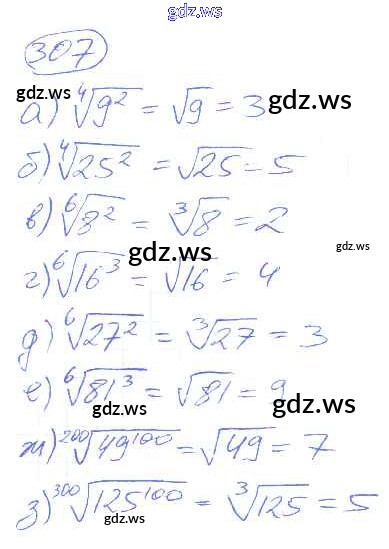 gdz.ws
307
gdz.ws
а) ⁴√9² = √9 = 3 gdz.ws
б) ⁴√25² = √25 = 5
в) ⁶√8² = ³√8 = 2
gdz.ws gdz.ws
г) ⁶√16³ = √16 = 4
д) ⁶√27² = ³√27 = 3
е) ⁶√81³ = √81 = 9
gdz.ws gdz.ws
ж) ²⁰⁰√49¹⁰⁰ = √49 = 7
з) ³⁰⁰√125¹⁰⁰ = ³√125 = 5
gdz.ws gdz.ws